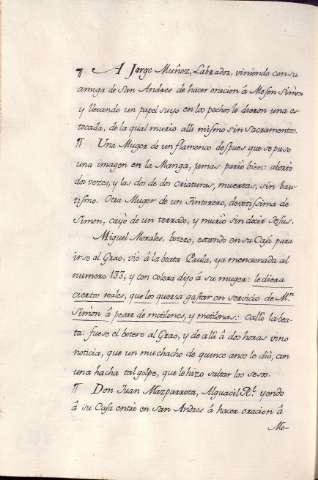 ¶ A Jorge Muñoz, Labrador, viniendo con su
amiga de San Andres de hacer oracion à Mosen Simon
y llevando un papel suyo en los pechos le dieron una es-
tocada, de la qual murio alli mismo sin Sacramentos.
¶ Una Muger de un flamenco despues que se puso
una imagen en la Manga, jamas pario bien: abortó
dos vezes, y las dos de dos criaturas, muertas, sin bau-
tismo. Otra Muger de un Tintorero, devotissima de
Simon, cayó de un terrado, y murió sin decir Jesus.
Miguel Morales, botero, estando en su Casa para
irse al Grao, vió à la beata Paula, ya mencionada al
numero 133, y con colera dijo à su muger: le diera
ciertos reales, que los queria gastar en servicio de Mn.
Simon à pesar de motilones, y motilonas: calló la bea-
ta: fuese el botero al Grao, y de alli à dos horas vino
noticia, que un muchacho de quince años le dió, con
una hacha tal golpe, que le hizo saltar los sesos.
¶ Don Juan Mazparrota, Alguacil Rl. yendo
à su Casa entró en San Andres à hacer oracion à
Mo-